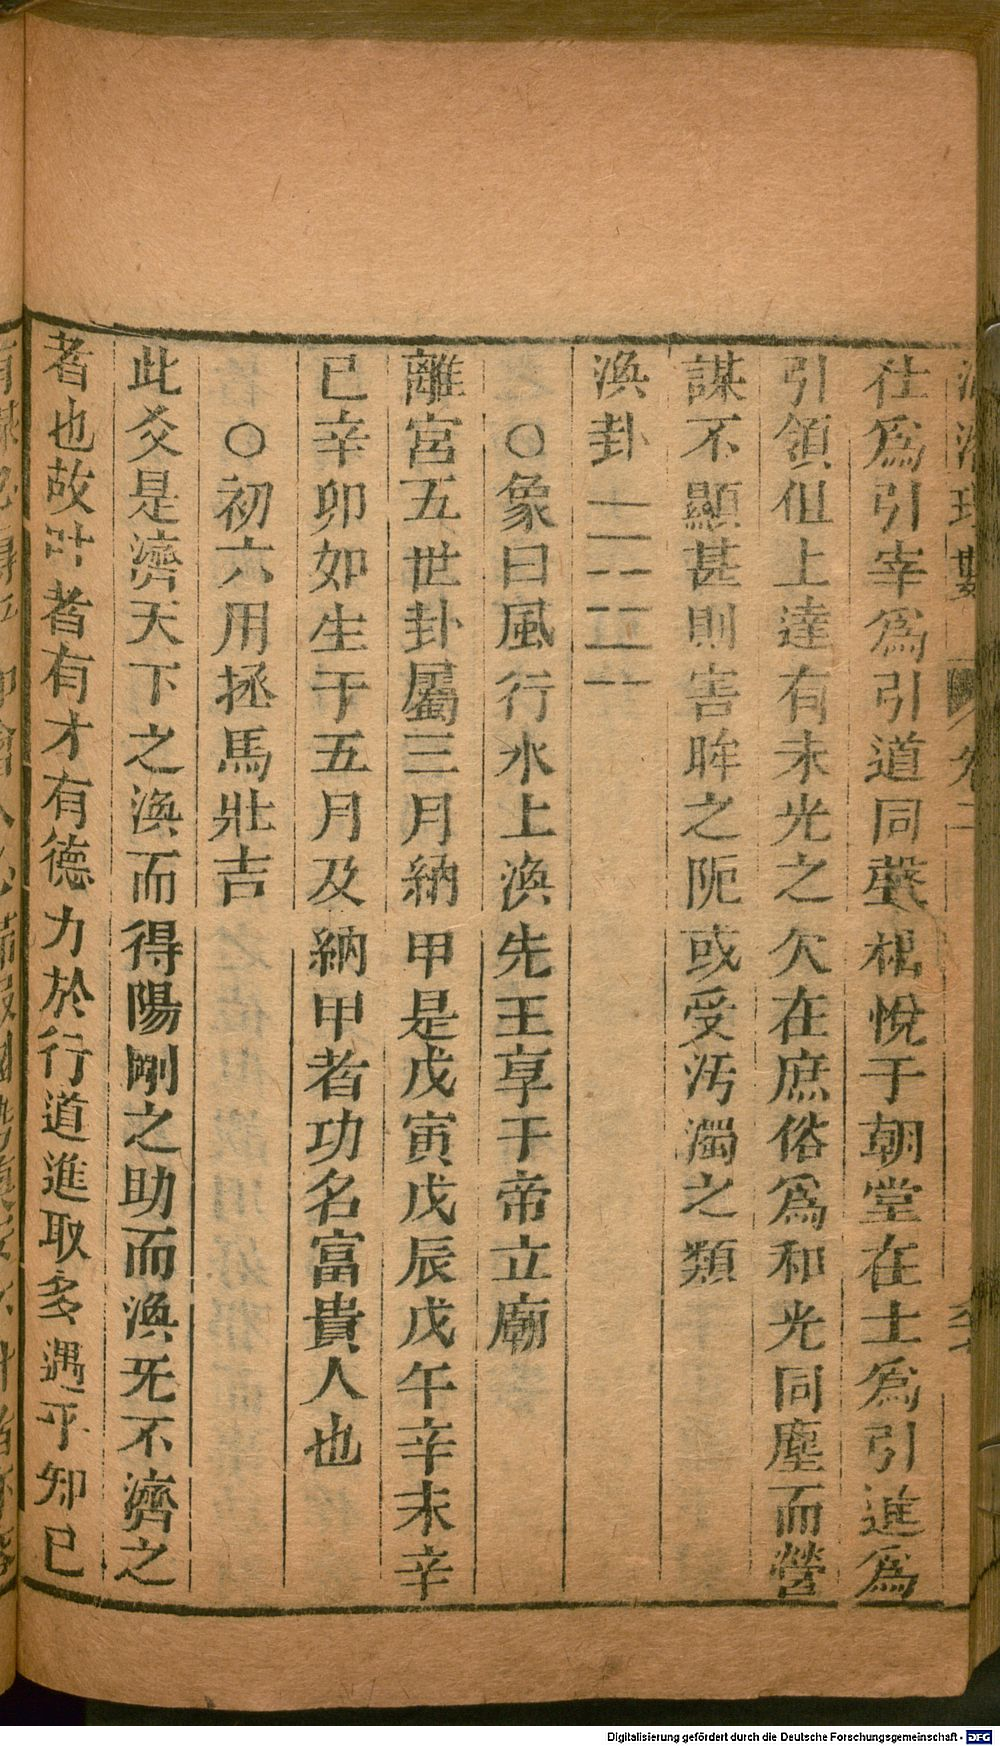 仕為引宰為引道同聲相悅于朝堂在士為引進為
引領但上達有未光之欠在庶俗為和光同塵而營
謀不顯甚則害眸之阨或受污濁之類
渙卦
○象曰風行水上渙先王享于帝立廟
離宮五世卦屬三月納甲是戊寅戊辰戊午辛未辛
巳辛卯如生于五月及納甲者功名富貴人也
○初六用拯馬壯吉
此爻是濟天下之渙而得陽剛之助而渙旡不濟之
者也故叶者有才有德力於行道進取多遇乎知已
Digitalisierung gefördert durch die Deutsche Forschungsgemeinschaft - DFG